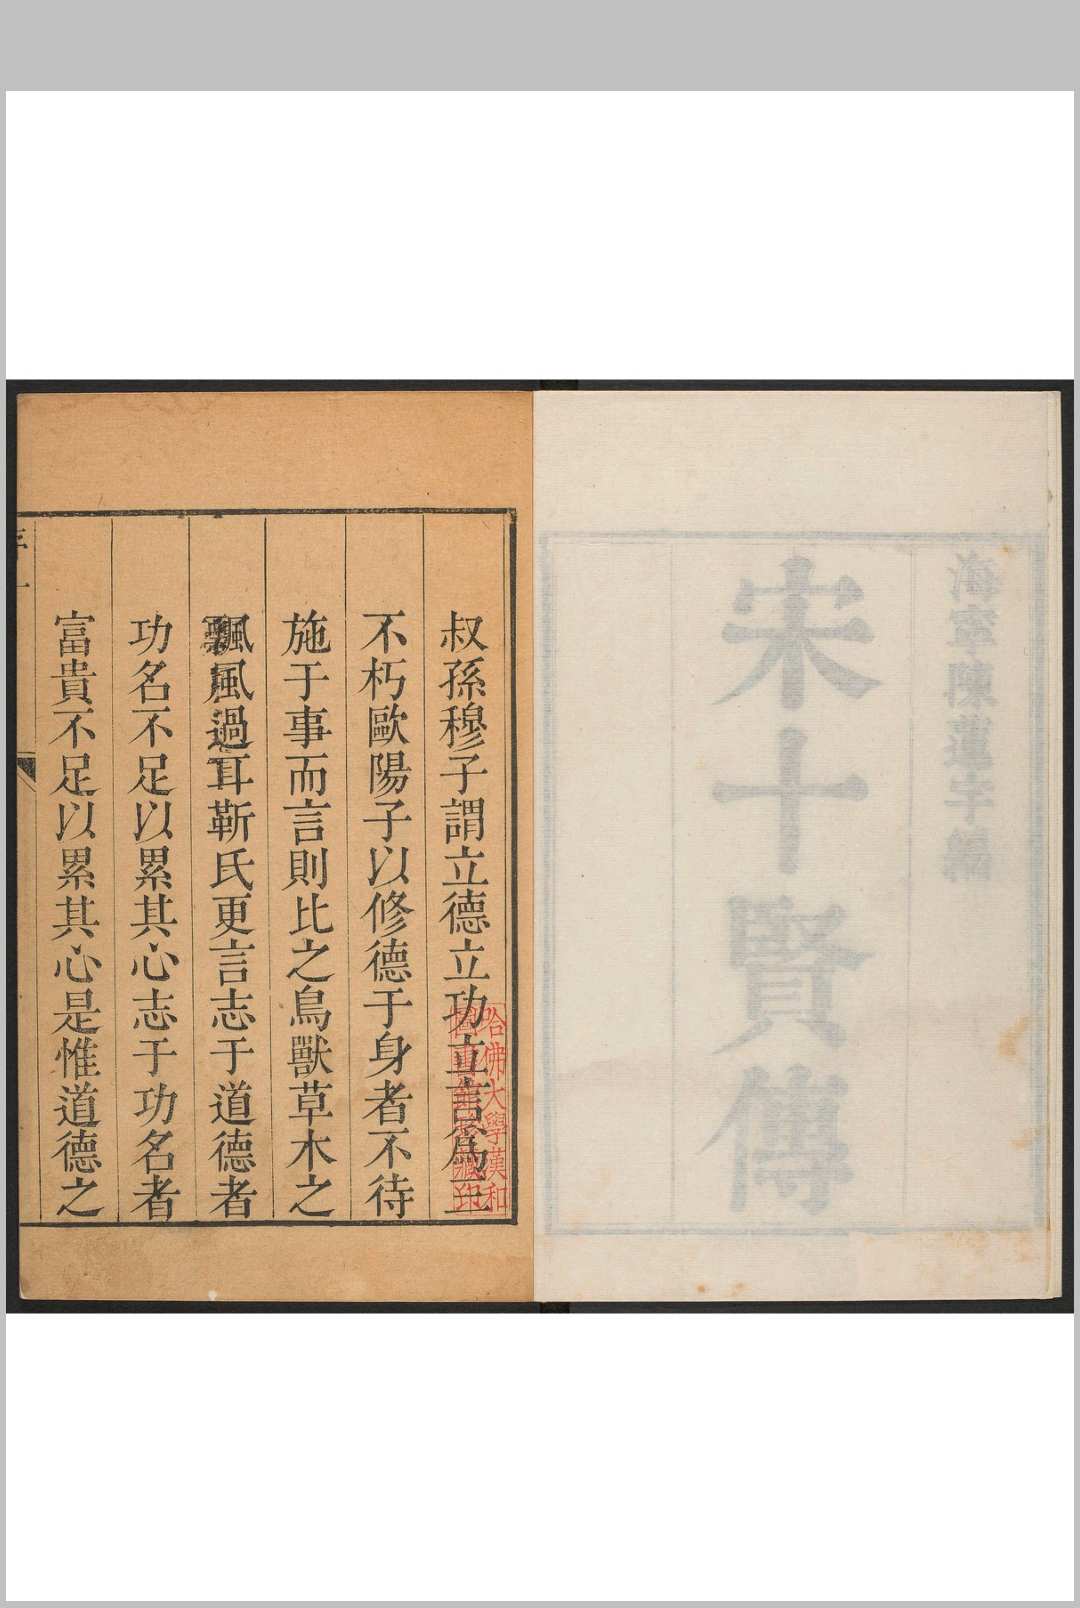 海寧陳蓮宇編
宋十賢傳
叔孫穆子謂立德立功立言爲三
不朽歐陽子以修德于身者不待
施于事而言則比之鳥獸草木之
飄風過耳靳氏更言志于道德者
功名不足以累其心志于功名者
富貴不足以累其心是惟道德之
序 一
哈佛大學漢和
圖書館珍藏印